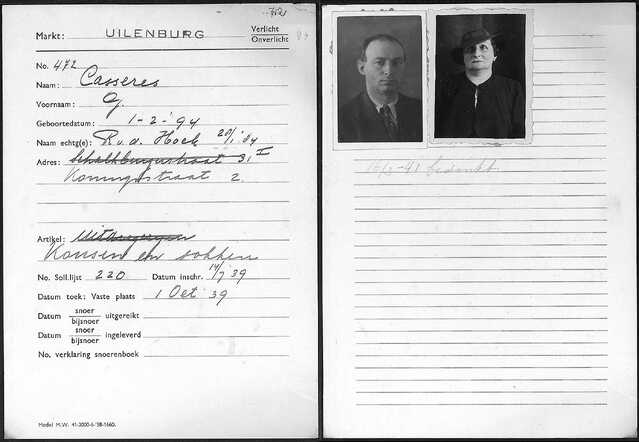 Markt: UILENBURG Verlicht
Onverlicht
No. 472
Naam: Casseres
Voornaam: G.
Geboortedatum: 1-2-'94
Naam echtg(e): R. v.d. Hoek 20/1 '84
Adres: Schalkburgerstraat 31 I
Koningstraat 2.
Artikel:
Kousen en sokken
No. Soll.lijst 220 Datum inschr. 14/7 39
Datum toek: Vaste plaats 1 Oct 39
Datum snoer/bijsnoer uitgereikt
Datum snoer/bijsnoer ingeleverd
No. verklaring snoerenboek
Model M.W. 41-2000-6-'38-1660.
-41 bedankt